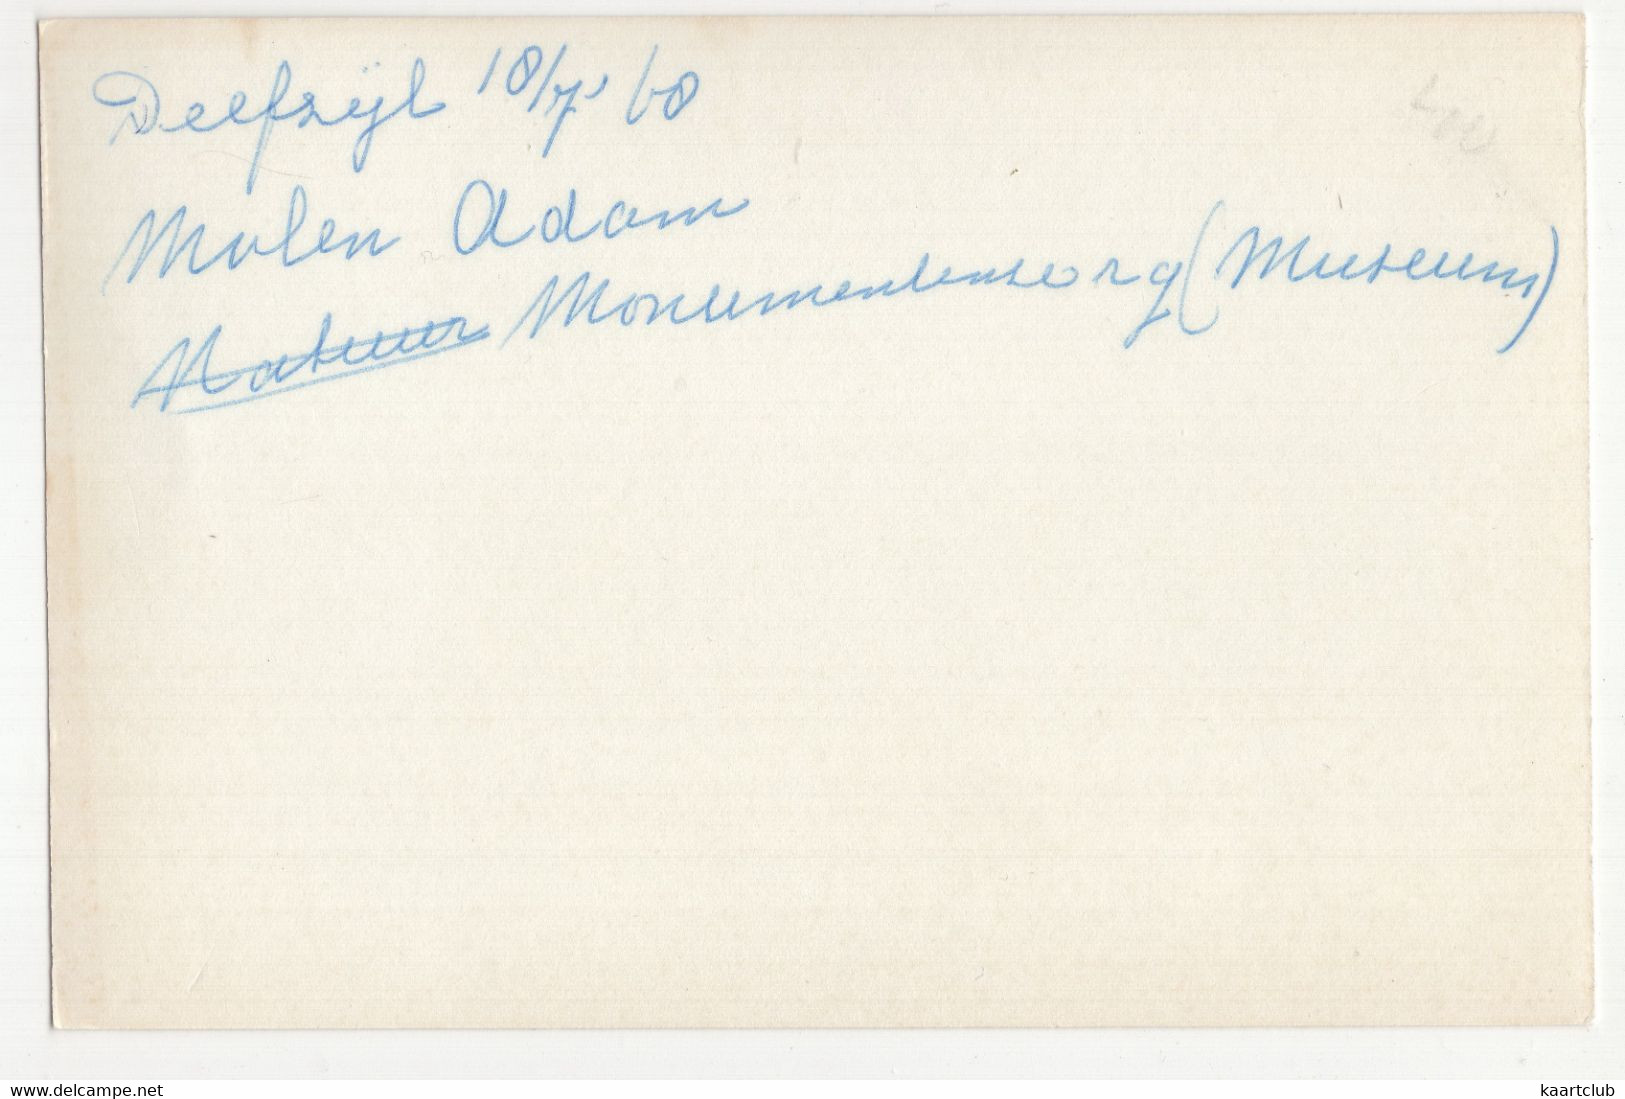 Delfzijl 18/7 '68
Molen Adam
Natuur Monumentenzorg (Museum)
delcampe.net
kaartclub